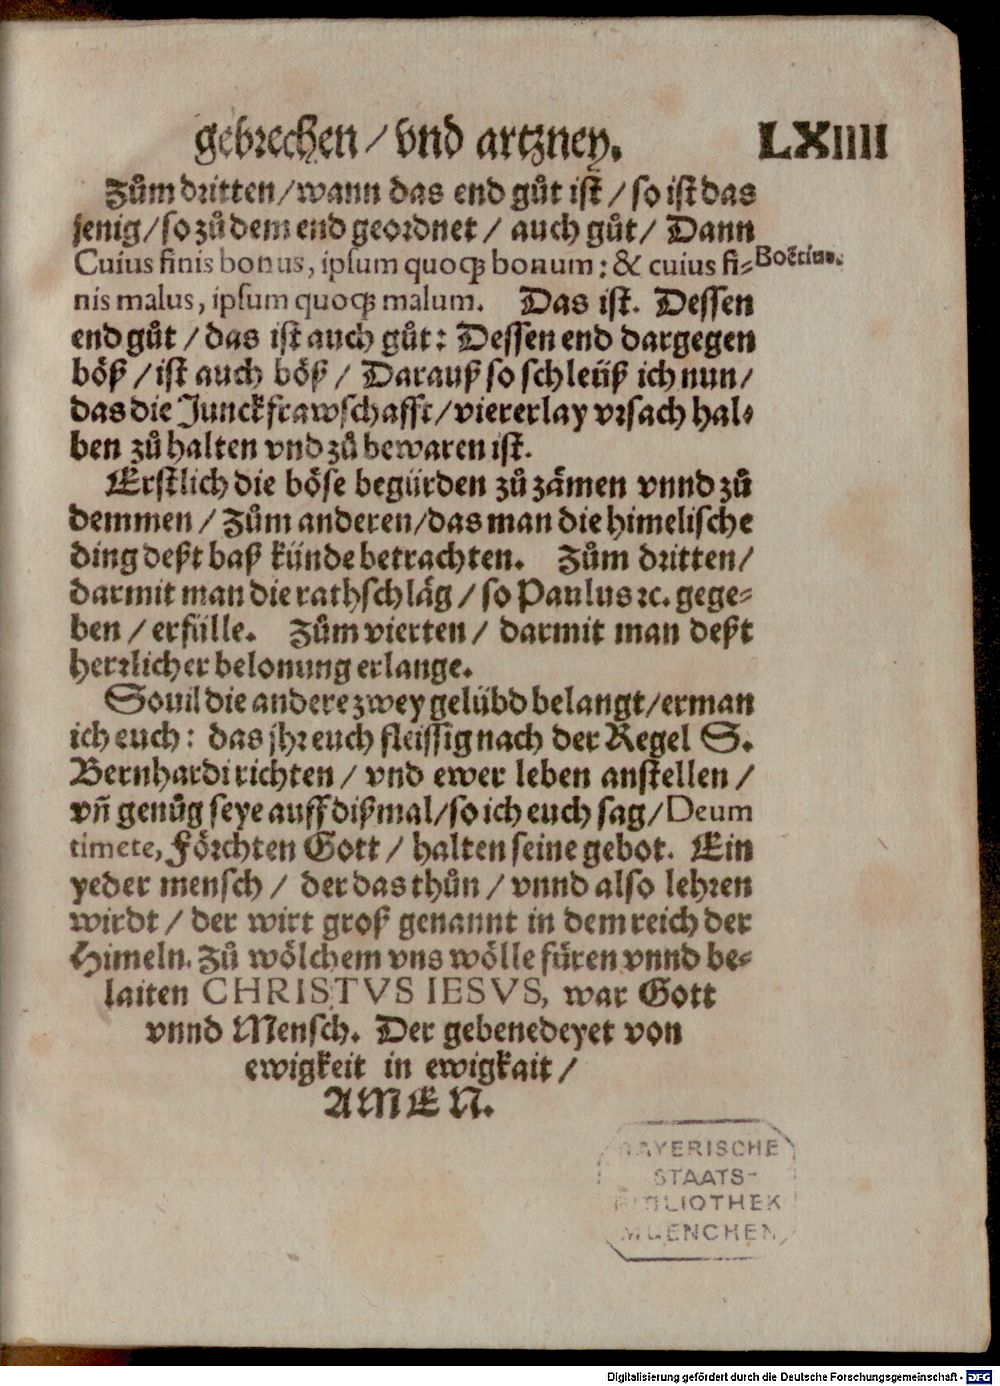 gebrechen / vnd artzney. LXIIII
Zům dritten / wann das end gůt ist / so ist das
jenig / so zů dem end geordnet / auch gůt / Dann
Cuius finis bonus, ipsum quoqꝫ bonum: & cuius fi⸗ Boëtius.
nis malus, ipsum quoqꝫ malum. Das ist. Dessen
end gůt / das ist auch gůt: Dessen end dargegen
böß / ist auch böß / Darauß so schleüß ich nun /
das die Junckfrawschafft / viererlay vrsach hal⸗
ben zů halten vnd zů bewaren ist.
Erstlich die böse begürden zů zämen vnnd zů
demmen / Zům anderen / das man die himelische
ding deßt baß künde betrachten. Zům dritten /
darmit man die rathschläg / so Paulus ꝛc. gege⸗
ben / erfülle. Zům vierten / darmit man deßt
herrlicher belonung erlange.
Souil die andere zwey gelübd belangt / erman
ich euch: das jhr euch fleissig nach der Regel S.
Bernhardi richten / vnd ewer leben anstellen /
vñ genůg seye auff dißmal / so ich euch sag / Deum
timete, Förchten Gott / halten seine gebot. Ein
yeder mensch / der das thůn / vnnd also lehren
wirdt / der wirt groß genannt in dem reich der
Himeln. Zů wölchem vns wölle füren vnnd be⸗
laiten CHRISTVS IESVS, war Gott
vnnd Mensch. Der gebenedeyet von
ewigkeit in ewigkait /
AMEN.
BAYERISCHE
STAATS-
BIBLIOTHEK
MUENCHEN
Digitalisierung gefördert durch die Deutsche Forschungsgemeinschaft - DFG